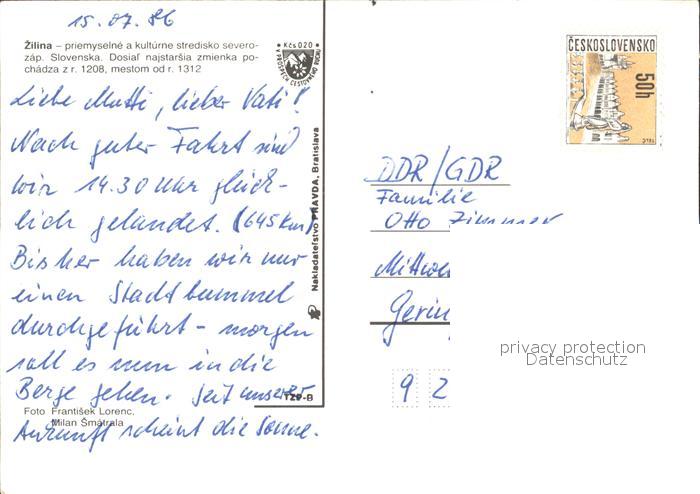 15.07.86
Žilina – priemyselné a kultúrne stredisko severo-
záp. Slovenska. Dosiaľ najstaršia zmienka po-
chádza z r. 1208, mestom od r. 1312
Kčs 0,20
Liebe Mutti, lieber Vati!
Nach guter Fahrt sind
wir 14.30 Uhr glück-
lich gelandet. (645 km)
Bisher haben wir nur
einen Stadtbummel
durchgeführt – morgen
soll es nun in die
Berge gehen. Seit unserer
Ankunft scheint die Sonne.
Foto František Lorenc,
Milan Šmátrala
TZP-B
Nakladateľstvo PRAVDA, Bratislava
ČESKOSLOVENSKO
50h
TELČ
DDR/GDR
Familie
Otto Zimmer
Mittwei
Gerin
9 2
privacy protection
Datenschutz